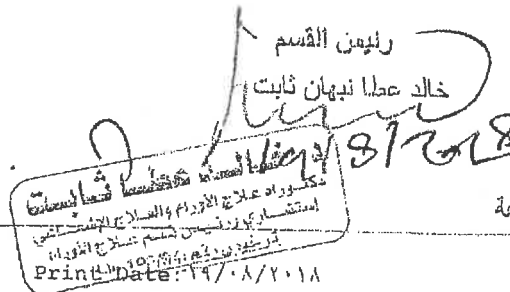 رئيس القسم
خالد عطا نبهان ثابت
19/8/2018
د. خالد عطا ثابت
دكتوراه علاج الأورام والعلاج الإشعاعي
إستشاري ورئيس قسم علاج الأورام
Print Date: ١٩/٠٨/٢٠١٨